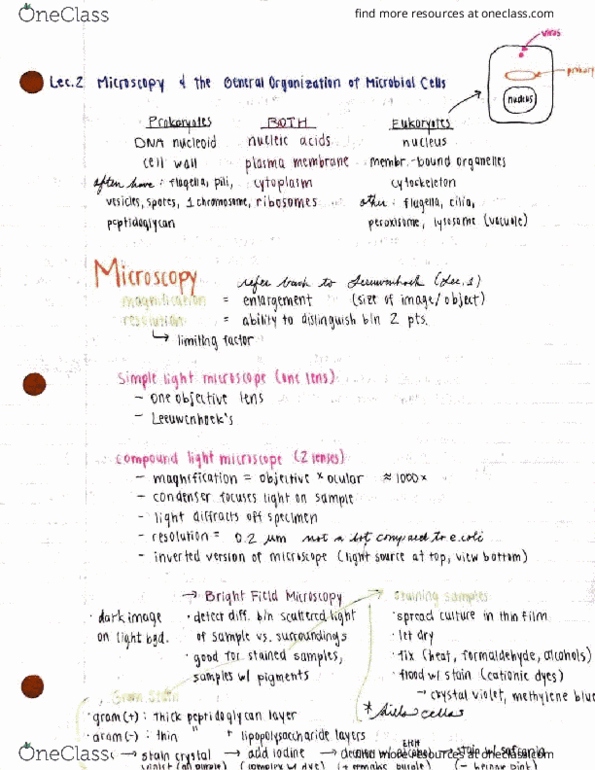 OneClass
find more resources at oneclass.com
virus
Lec.2 Microscopy & the General Organization of Microbial Cells
nucleus
Prokaryotes BOTH Eukaryotes
DNA nucleoid nucleic acids nucleus
cell wall plasma membrane membr.-bound organelles
often have: flagella, pili, cytoplasm cytoskeleton
vesicles, spores, 1 chromosome, ribosomes other: flagella, cilia,
peptidoglycan peroxisome, lysosome (vacuole)
Microscopy refer back to Leeuwenhoek (Lec. 1)
magnification = enlargement (size of image/object)
resolution = ability to distinguish b/n 2 pts.
↳ limiting factor
simple light microscope (one lens)
- one objective lens
- Leeuwenhoek's
compound light microscope (2 lenses)
- magnification = objective × ocular ≈ 1000×
- condenser focuses light on sample
- light diffracts off specimen
- resolution = 0.2 μm not a lot compared to e.coli
- inverted version of microscope (light source at top, view bottom)
→ Bright Field Microscopy staining samples
· dark image · detect diff. b/n scattered light · spread culture in thin film
on light bgd. of sample vs. surroundings · let dry
· good for stained samples, · fix (heat, formaldehyde, alcohols)
samples w/ pigments · flood w/ stain (cationic dyes)
→ crystal violet, methylene blue
* kills cells
Gram Stain
· gram (+): thick peptidoglycan layer
· gram (-): thin " + lipopolysaccharide layers
OneClass
find more resources at oneclass.com
→ stain crystal → add iodine →